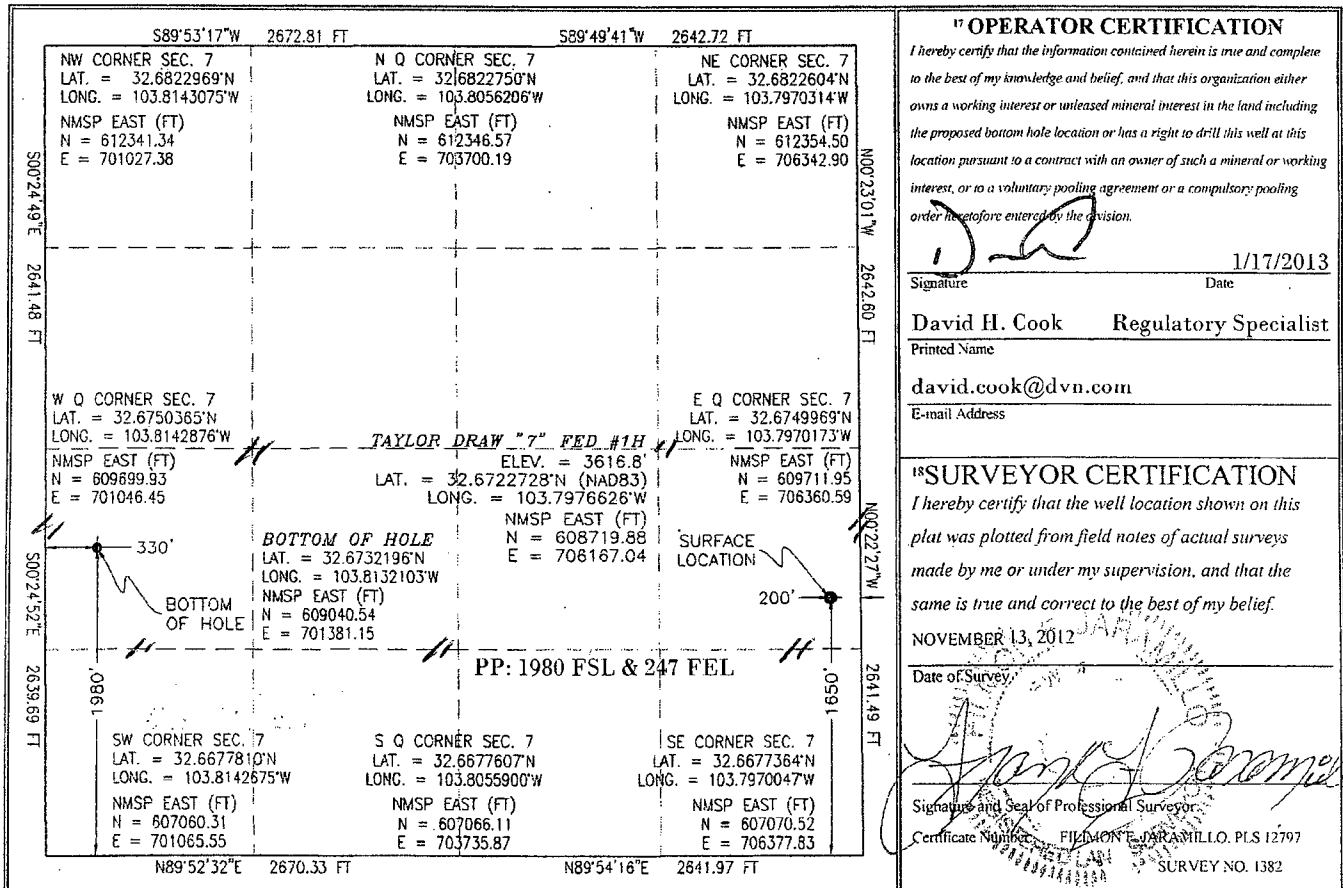 S89°53'17"W 2672.81 FT S89°49'41"W 2642.72 FT
NW CORNER SEC. 7
LAT. = 32.6822969°N
LONG. = 103.8143075°W
NMSP EAST (FT)
N = 612341.34
E = 701027.38
N Q CORNER SEC. 7
LAT. = 32.6822750°N
LONG. = 103.8056206°W
NMSP EAST (FT)
N = 612346.57
E = 703700.19
NE CORNER SEC. 7
LAT. = 32.6822604°N
LONG. = 103.7970314°W
NMSP EAST (FT)
N = 612354.50
E = 706342.90
S00°24'49"E 2641.48 FT
N00°23'01"W 2642.60 FT
W Q CORNER SEC. 7
LAT. = 32.6750365°N
LONG. = 103.8142876°W
NMSP EAST (FT)
N = 609699.93
E = 701046.45
TAYLOR DRAW "7" FED #1H
ELEV. = 3616.8'
LAT. = 32.6722728°N (NAD83)
LONG. = 103.7976626°W
NMSP EAST (FT)
N = 608719.88
E = 706167.04
E Q CORNER SEC. 7
LAT. = 32.6749969°N
LONG. = 103.7970173°W
NMSP EAST (FT)
N = 609711.95
E = 706360.59
330'
BOTTOM
OF HOLE
BOTTOM OF HOLE
LAT. = 32.6732196°N
LONG. = 103.8132103°W
NMSP EAST (FT)
N = 609040.54
E = 701381.15
SURFACE
LOCATION
200'
S00°24'52"E 2639.69 FT
N00°22'27"W 2641.49 FT
1980'
PP: 1980 FSL & 247 FEL
1650'
SW CORNER SEC. 7
LAT. = 32.6677810°N
LONG. = 103.8142675°W
NMSP EAST (FT)
N = 607060.31
E = 701065.55
S Q CORNER SEC. 7
LAT. = 32.6677607°N
LONG. = 103.8055900°W
NMSP EAST (FT)
N = 607066.11
E = 703735.87
SE CORNER SEC. 7
LAT. = 32.6677364°N
LONG. = 103.7970047°W
NMSP EAST (FT)
N = 607070.52
E = 706377.83
N89°52'32"E 2670.33 FT N89°54'16"E 2641.97 FT
17 OPERATOR CERTIFICATION
I hereby certify that the information contained herein is true and complete
to the best of my knowledge and belief, and that this organization either
owns a working interest or unleased mineral interest in the land including
the proposed bottom hole location or has a right to drill this well at this
location pursuant to a contract with an owner of such a mineral or working
interest, or to a voluntary pooling agreement or a compulsory pooling
order heretofore entered by the division.
1/17/2013
Signature Date
David H. Cook Regulatory Specialist
Printed Name
david.cook@dvn.com
E-mail Address
18 SURVEYOR CERTIFICATION
I hereby certify that the well location shown on this
plat was plotted from field notes of actual surveys
made by me or under my supervision, and that the
same is true and correct to the best of my belief.
NOVEMBER 13, 2012
Date of Survey
Signature and Seal of Professional Surveyor:
Certificate Number: FILIMON F. JARAMILLO, PLS 12797
SURVEY NO. 1382